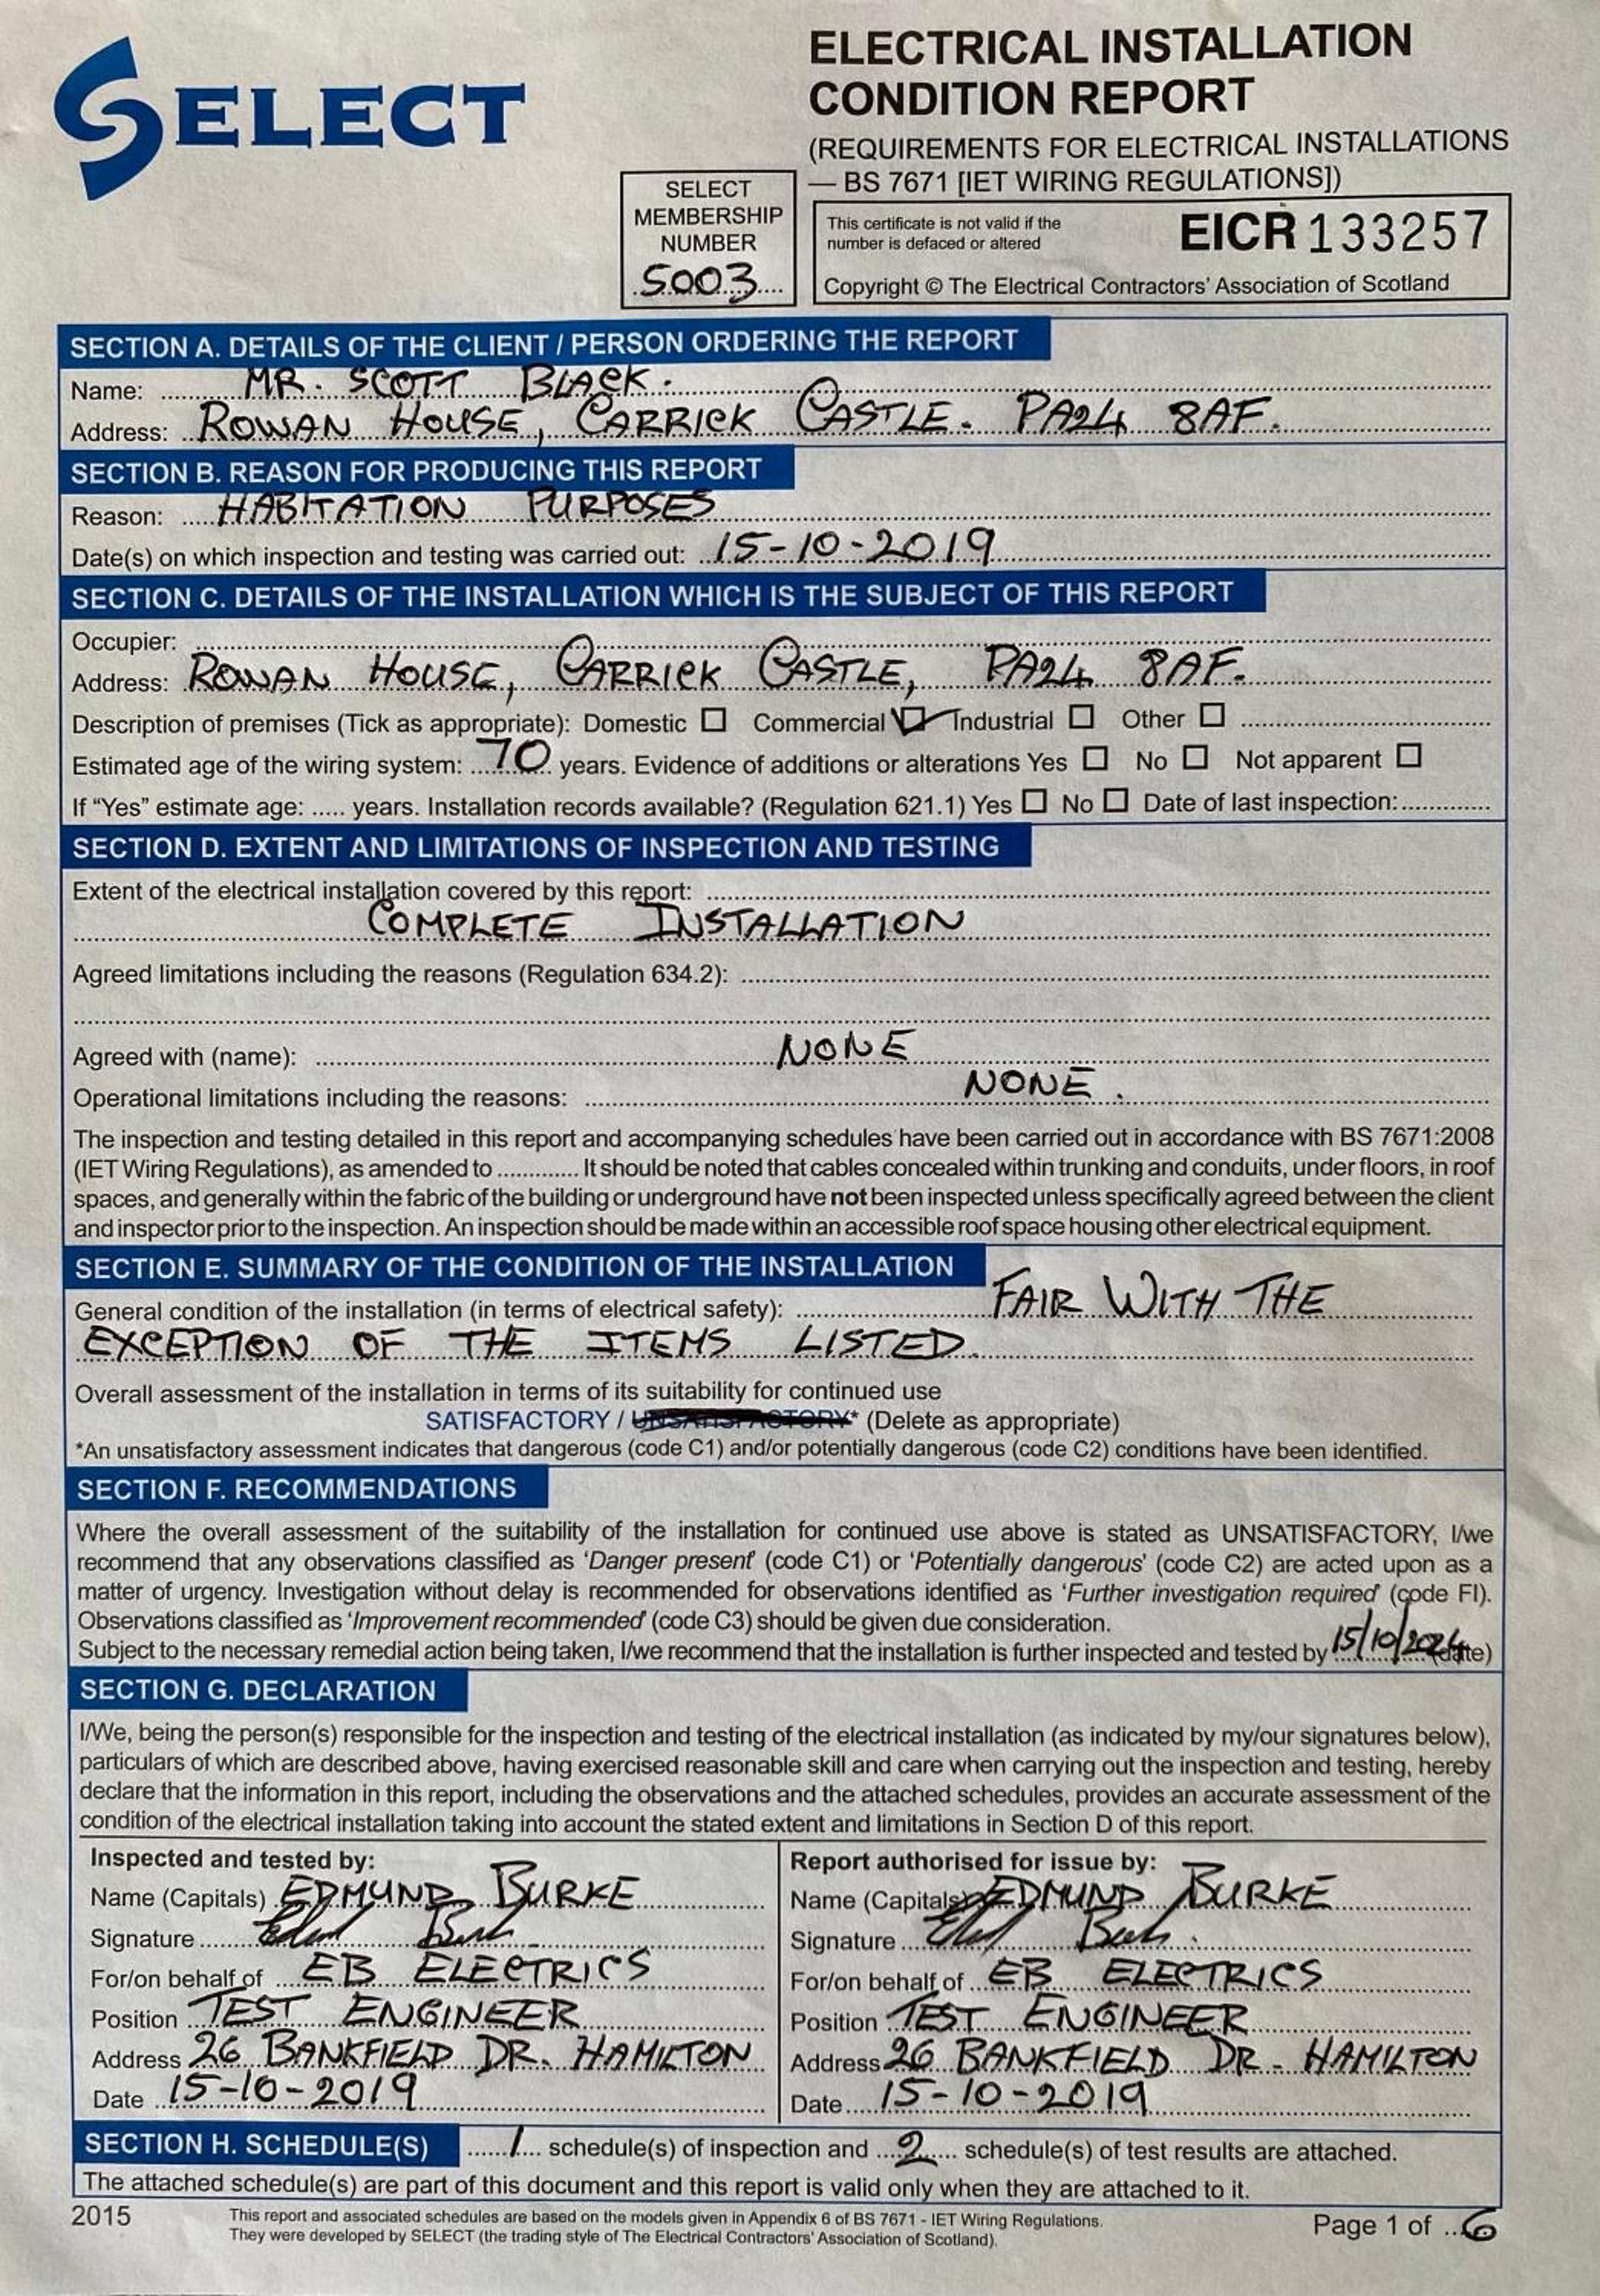 SELECT
ELECTRICAL INSTALLATION
CONDITION REPORT
(REQUIREMENTS FOR ELECTRICAL INSTALLATIONS
— BS 7671 [IET WIRING REGULATIONS])
SELECT
MEMBERSHIP
NUMBER
5003
This certificate is not valid if the
number is defaced or altered
EICR 133257
Copyright © The Electrical Contractors' Association of Scotland
SECTION A. DETAILS OF THE CLIENT / PERSON ORDERING THE REPORT
Name: MR. SCOTT BLACK.
Address: ROWAN HOUSE, CARRICK CASTLE. PA24 8AF.
SECTION B. REASON FOR PRODUCING THIS REPORT
Reason: HABITATION PURPOSES
Date(s) on which inspection and testing was carried out: 15-10-2019
SECTION C. DETAILS OF THE INSTALLATION WHICH IS THE SUBJECT OF THIS REPORT
Occupier:
Address: ROWAN HOUSE, CARRICK CASTLE, PA24 8AF.
Description of premises (Tick as appropriate): Domestic ☐ Commercial ☑ Industrial ☐ Other ☐
Estimated age of the wiring system: 70 years. Evidence of additions or alterations Yes ☐ No ☐ Not apparent ☐
If "Yes" estimate age: ..... years. Installation records available? (Regulation 621.1) Yes ☐ No ☐ Date of last inspection:
SECTION D. EXTENT AND LIMITATIONS OF INSPECTION AND TESTING
Extent of the electrical installation covered by this report:
COMPLETE INSTALLATION
Agreed limitations including the reasons (Regulation 634.2):
Agreed with (name): NONE
Operational limitations including the reasons: NONE.
The inspection and testing detailed in this report and accompanying schedules have been carried out in accordance with BS 7671:2008
(IET Wiring Regulations), as amended to ............ It should be noted that cables concealed within trunking and conduits, under floors, in roof
spaces, and generally within the fabric of the building or underground have not been inspected unless specifically agreed between the client
and inspector prior to the inspection. An inspection should be made within an accessible roof space housing other electrical equipment.
SECTION E. SUMMARY OF THE CONDITION OF THE INSTALLATION
General condition of the installation (in terms of electrical safety): FAIR WITH THE
EXCEPTION OF THE ITEMS LISTED.
Overall assessment of the installation in terms of its suitability for continued use
SATISFACTORY / UNSATISFACTORY* (Delete as appropriate)
*An unsatisfactory assessment indicates that dangerous (code C1) and/or potentially dangerous (code C2) conditions have been identified.
SECTION F. RECOMMENDATIONS
Where the overall assessment of the suitability of the installation for continued use above is stated as UNSATISFACTORY, I/we
recommend that any observations classified as 'Danger present' (code C1) or 'Potentially dangerous' (code C2) are acted upon as a
matter of urgency. Investigation without delay is recommended for observations identified as 'Further investigation required' (code FI).
Observations classified as 'Improvement recommended' (code C3) should be given due consideration.
Subject to the necessary remedial action being taken, I/we recommend that the installation is further inspected and tested by 15/10/2024 (date)
SECTION G. DECLARATION
I/We, being the person(s) responsible for the inspection and testing of the electrical installation (as indicated by my/our signatures below),
particulars of which are described above, having exercised reasonable skill and care when carrying out the inspection and testing, hereby
declare that the information in this report, including the observations and the attached schedules, provides an accurate assessment of the
condition of the electrical installation taking into account the stated extent and limitations in Section D of this report.
Inspected and tested by:
Name (Capitals) EDMUND BURKE
Signature
For/on behalf of EB ELECTRICS
Position TEST ENGINEER
Address 26 BANKFIELD DR. HAMILTON
Date 15-10-2019
Report authorised for issue by:
Name (Capitals) EDMUND BURKE
Signature
For/on behalf of EB ELECTRICS
Position TEST ENGINEER
Address 26 BANKFIELD DR. HAMILTON
Date 15-10-2019
SECTION H. SCHEDULE(S) 1 schedule(s) of inspection and 2 schedule(s) of test results are attached.
The attached schedule(s) are part of this document and this report is valid only when they are attached to it.
2015
This report and associated schedules are based on the models given in Appendix 6 of BS 7671 - IET Wiring Regulations.
They were developed by SELECT (the trading style of The Electrical Contractors' Association of Scotland).
Page 1 of 6